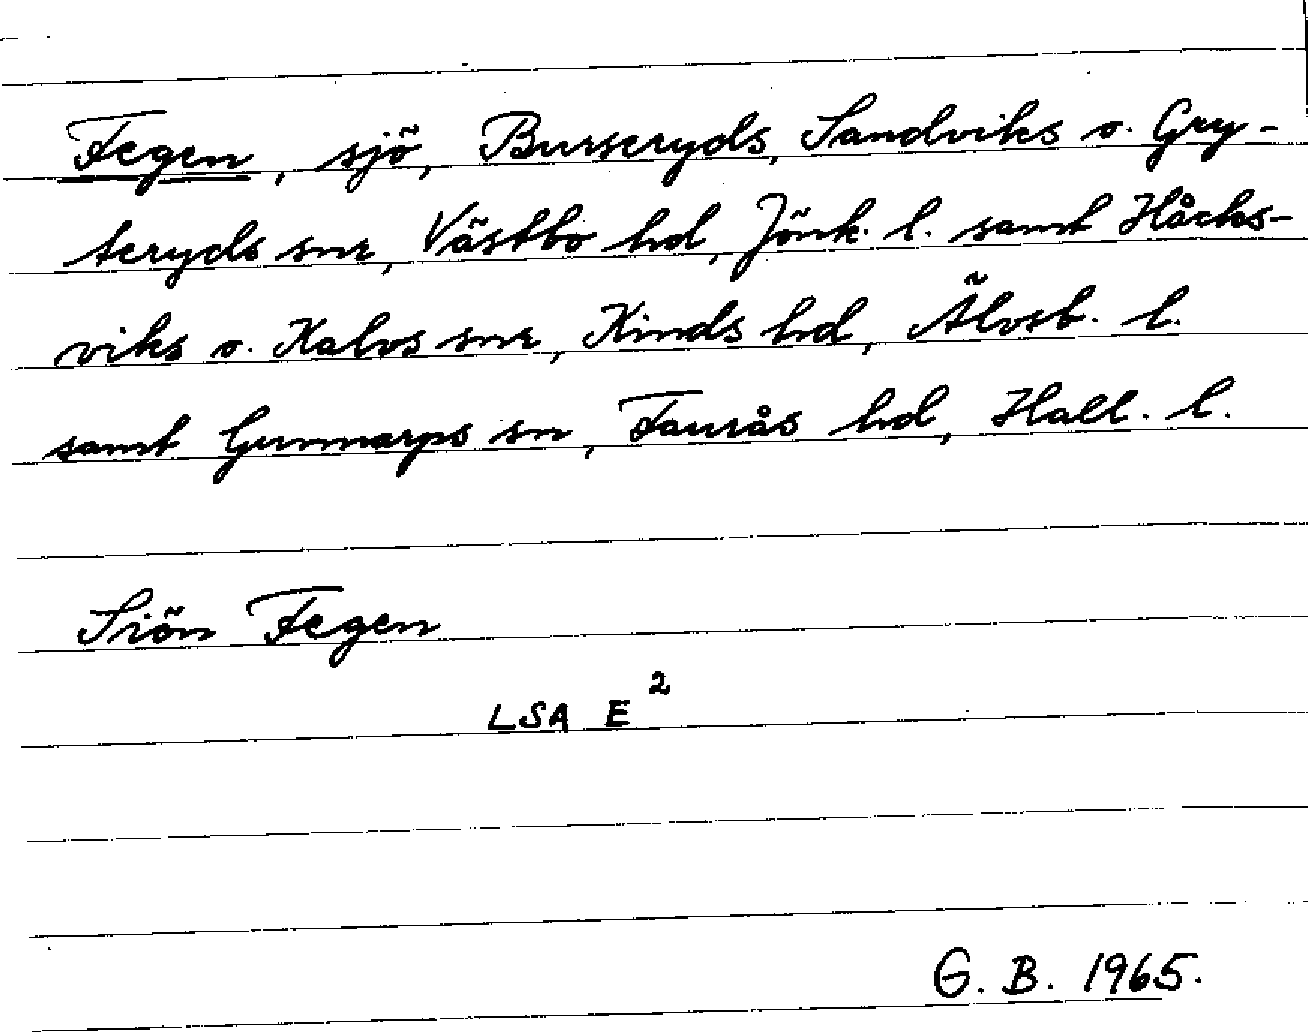 Fegen, sjö, Burseryds, Sandviks o. Gry-
teryds snr, Västbo hd, Jönk. l. samt Håcks-
viks o. Kalvs snr, Kinds hd, Älvsb. l.
samt Gunnarps sn, Faurås hd, Hall. l.
Siön Fegen
LSA E²
G. B. 1965.